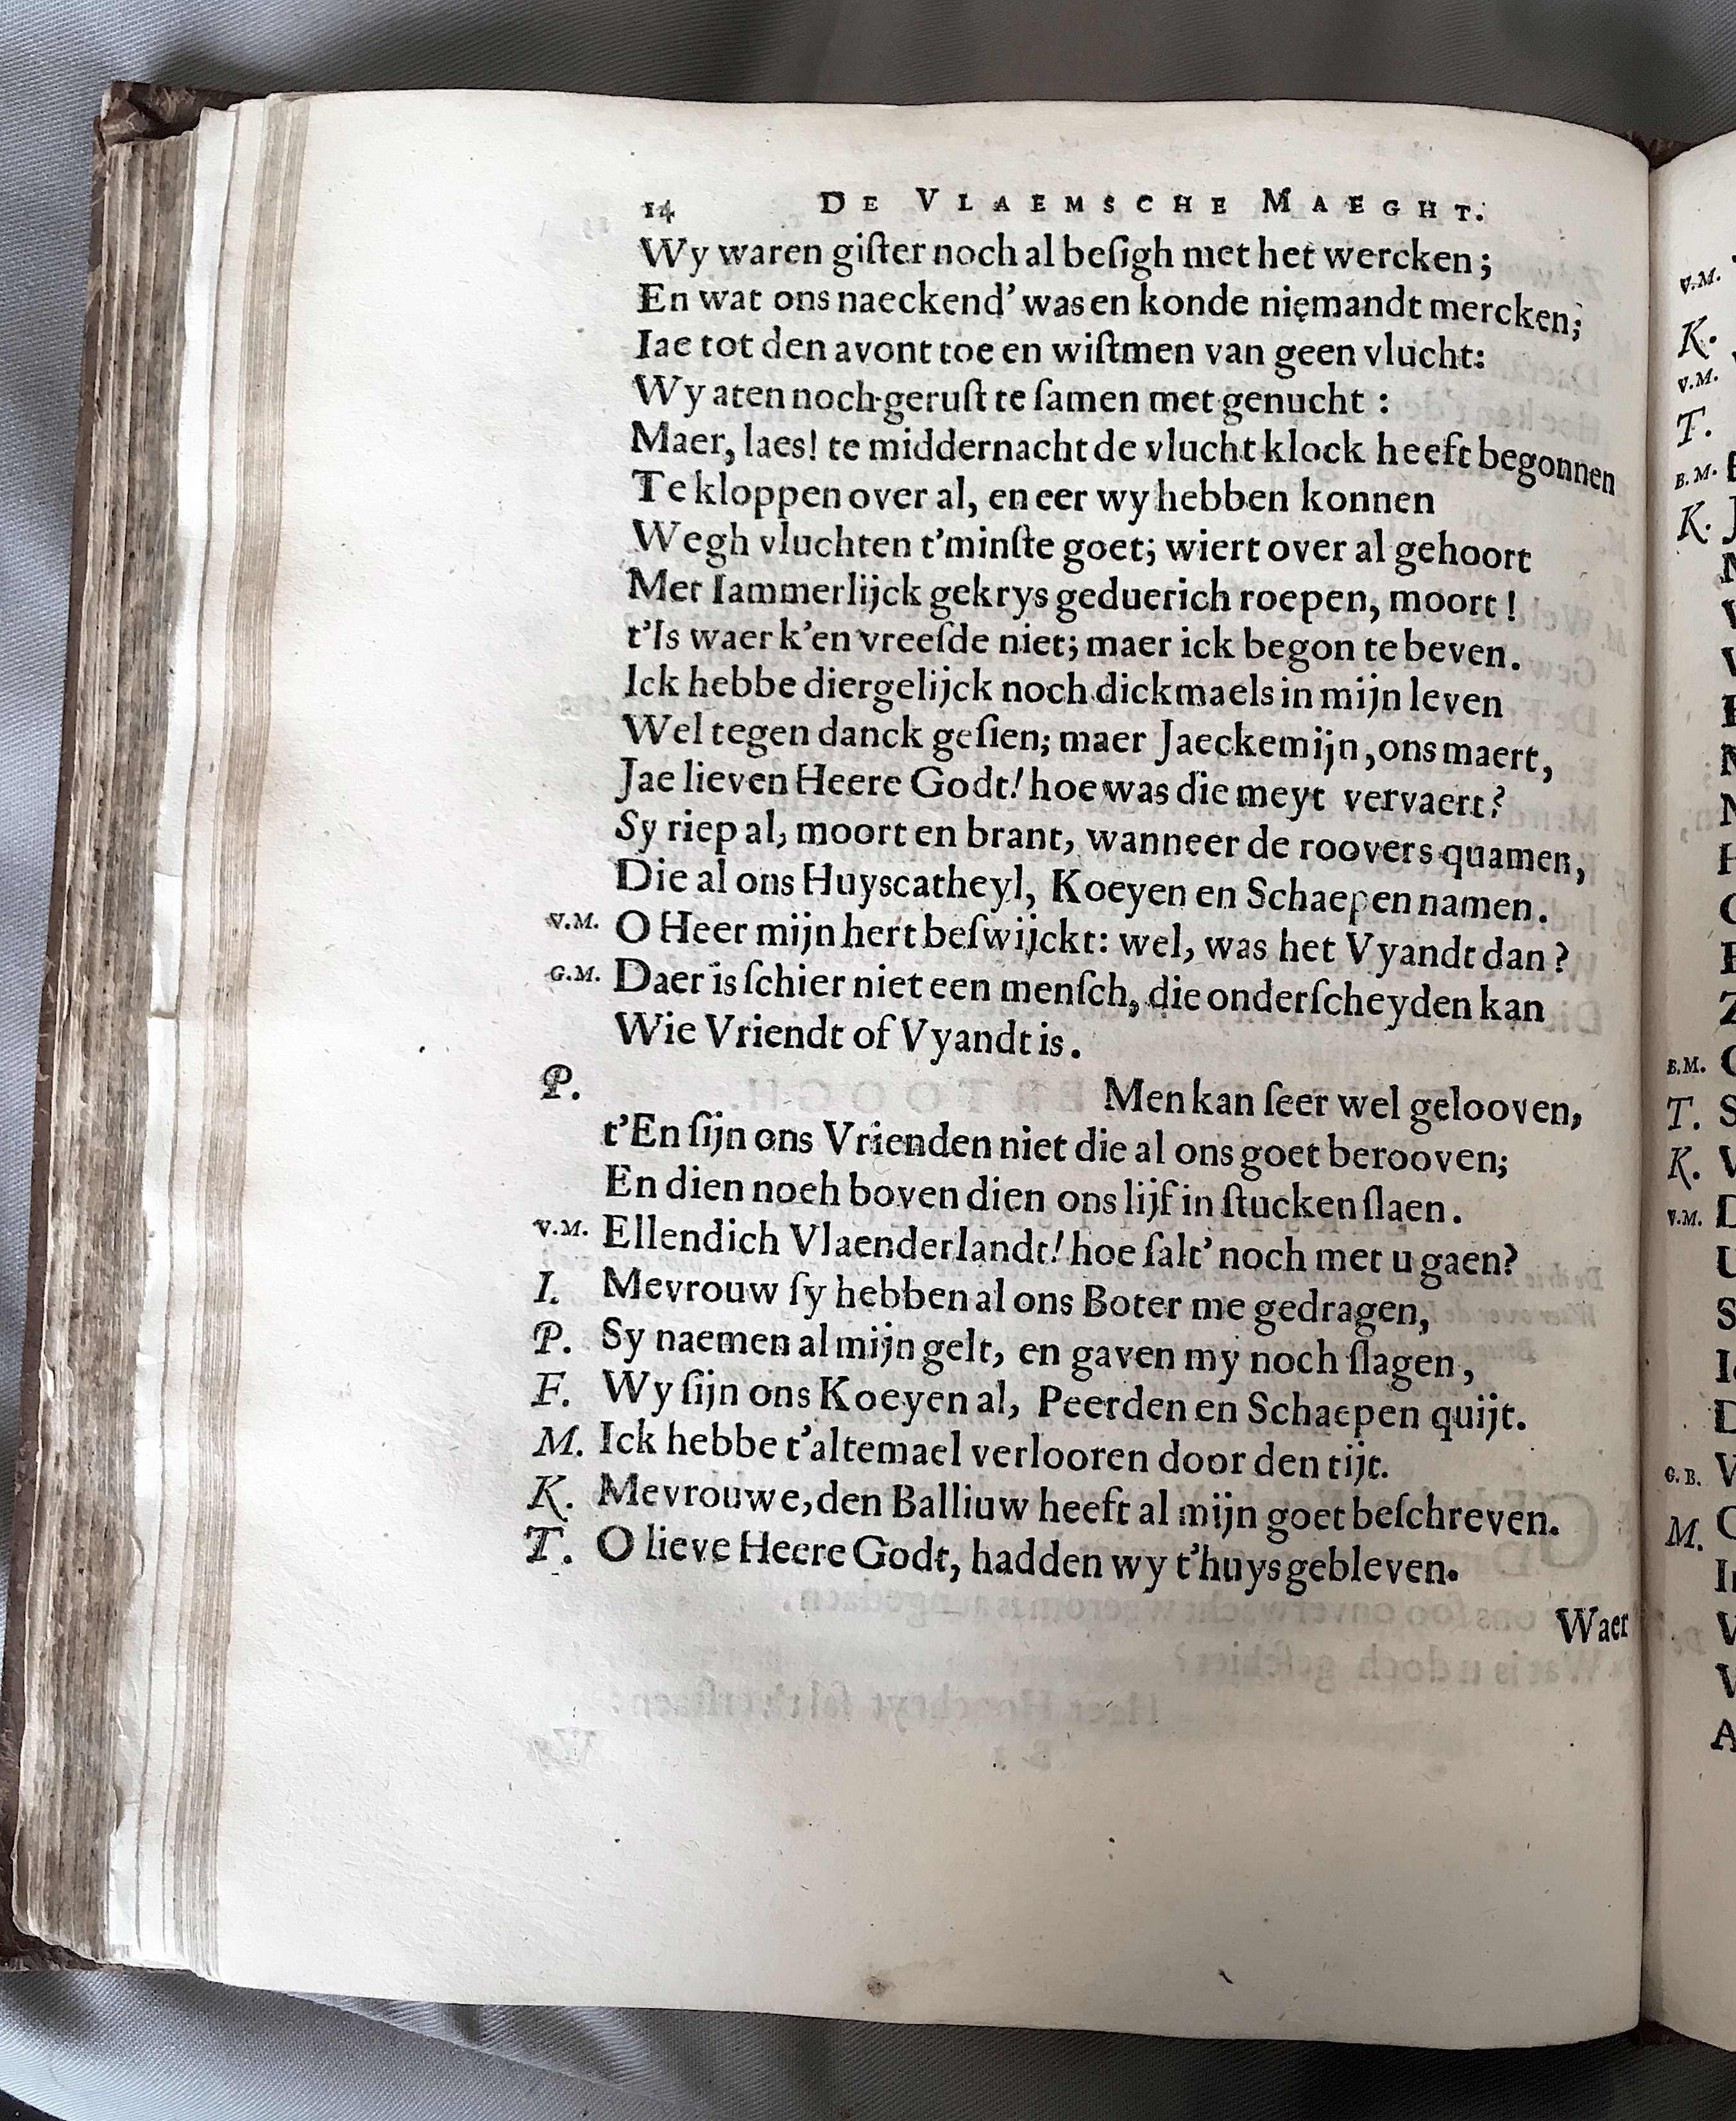 14 DE VLAEMSCHE MAEGHT.
Wy waren giſter noch al beſigh met het wercken;
En wat ons naeckend' was en konde niemandt mercken;
Iae tot den avont toe en wiſtmen van geen vlucht:
Wy aten noch geruſt te ſamen met genucht :
Maer, laes! te middernacht de vlucht klock heeft begonnen
Te kloppen over al, en eer wy hebben konnen
Wegh vluchten t'minſte goet; wiert over al gehoort
Met Iammerlijck gekrys geduerich roepen, moort !
t'Is waer k'en vreeſde niet; maer ick begon te beven.
Ick hebbe diergelijck noch dickmaels in mijn leven
Wel tegen danck geſien; maer Jaeckemijn, ons maert,
Jae lieven Heere Godt! hoe was die meyt vervaert?
Sy riep al, moort en brant, wanneer de roovers quamen,
Die al ons Huyscatheyl, Koeyen en Schaepen namen.
V.M. O Heer mijn hert beſwijckt: wel, was het Vyandt dan?
G.M. Daer is ſchier niet een menſch, die onderſcheyden kan
Wie Vriendt of Vyandt is.
P. Men kan ſeer wel gelooven,
t'En ſijn ons Vrienden niet die al ons goet berooven;
En dien noeh boven dien ons lijf in ſtucken ſlaen.
V.M. Ellendich Vlaenderlandt! hoe ſalt' noch met u gaen?
I. Mevrouw ſy hebben al ons Boter me gedragen,
P. Sy naemen al mijn gelt, en gaven my noch ſlagen,
F. Wy ſijn ons Koeyen al, Peerden en Schaepen quijt.
M. Ick hebbe t'altemael verlooren door den tijt.
K. Mevrouwe, den Balliuw heeft al mijn goet beſchreven.
T. O lieve Heere Godt, hadden wy t'huys gebleven.
Waer
V.M.
K.
V.M.
T.
B.M.
K.
B.M.
T.
K.
V.M.
G.B.
M.